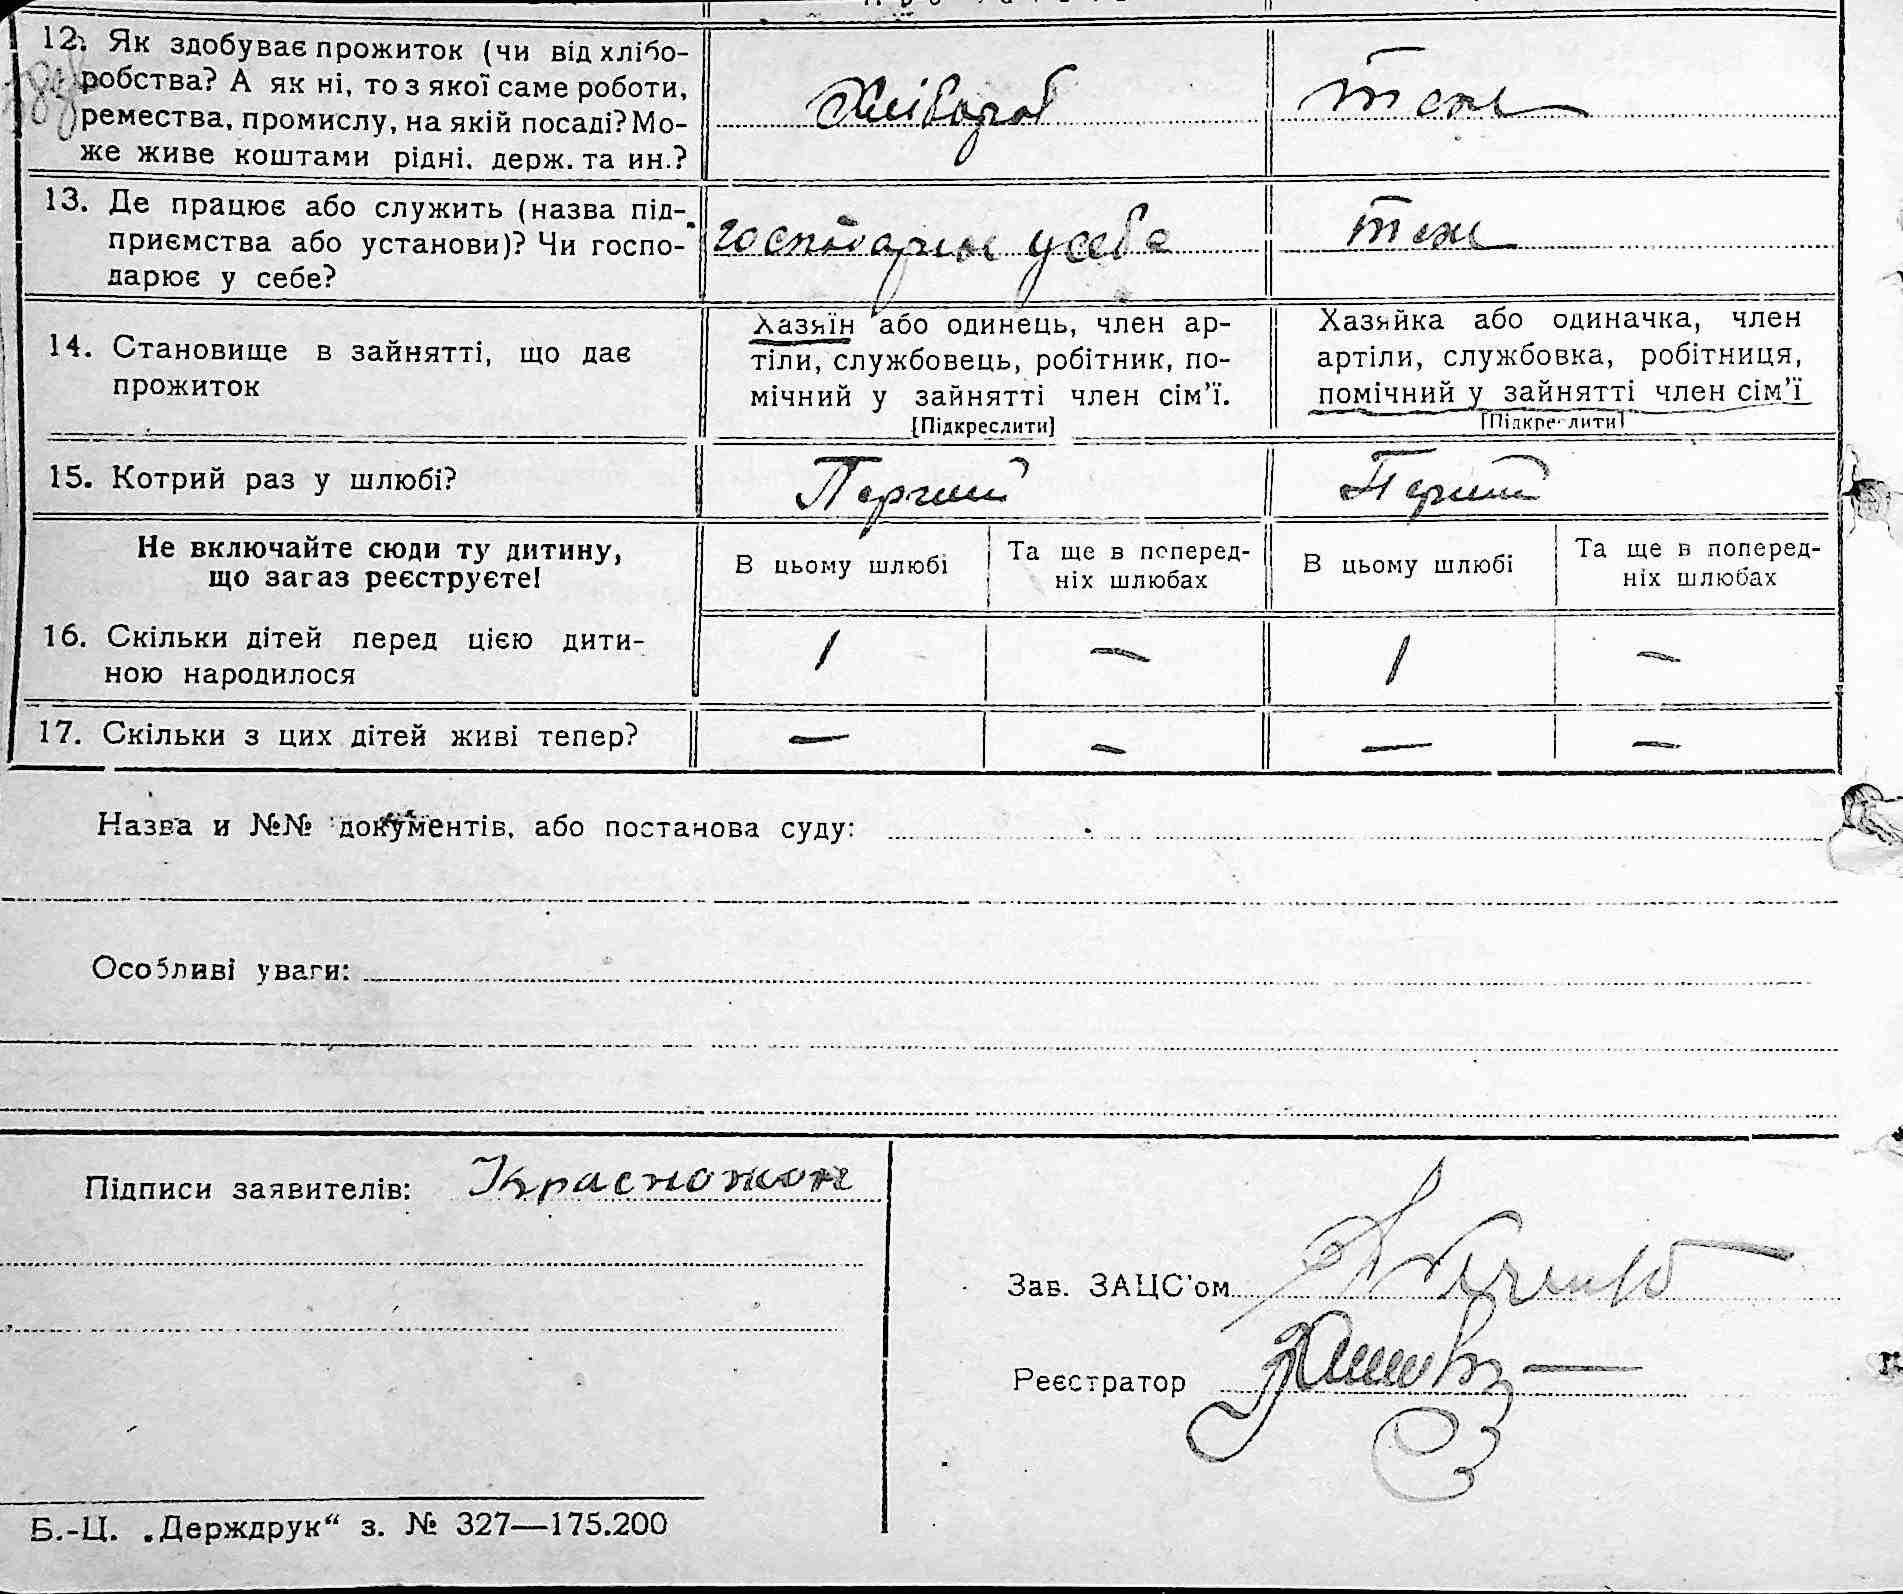 12. Як здобуває прожиток (чи від хлібо-
робства? А як ні, то з якої саме роботи,
ремества, промислу, на якій посаді? Мо-
же живе коштами рідні, держ. та ин.?
Хлібороб
теж
13. Де працює або служить (назва під-
приємства або установи)? Чи госпо-
дарює у себе?
господарює у себе
теж
14. Становище в зайнятті, що дає
прожиток
Хазяїн або одинець, член ар-
тіли, службовець, робітник, по-
мічний у зайнятті член сім'ї.
[Підкреслити]
Хазяйка або одиначка, член
артіли, службовка, робітниця,
помічний у зайнятті член сім'ї
[Підкреслити]
15. Котрий раз у шлюбі?
Перший
Перший
Не включайте сюди ту дитину,
що загаз реєструєте!
В цьому шлюбі
Та ще в поперед-
ніх шлюбах
В цьому шлюбі
Та ще в поперед-
ніх шлюбах
16. Скільки дітей перед цією дити-
ною народилося
1 — 1 —
17. Скільки з цих дітей живі тепер?
— — — —
Назва и №№ документів, або постанова суду:
Особливі уваги:
Підписи заявителів: Красножон
Зав. ЗАЦС'ом
Реєстратор
Б.-Ц. „Держдрук“ з. № 327—175.200